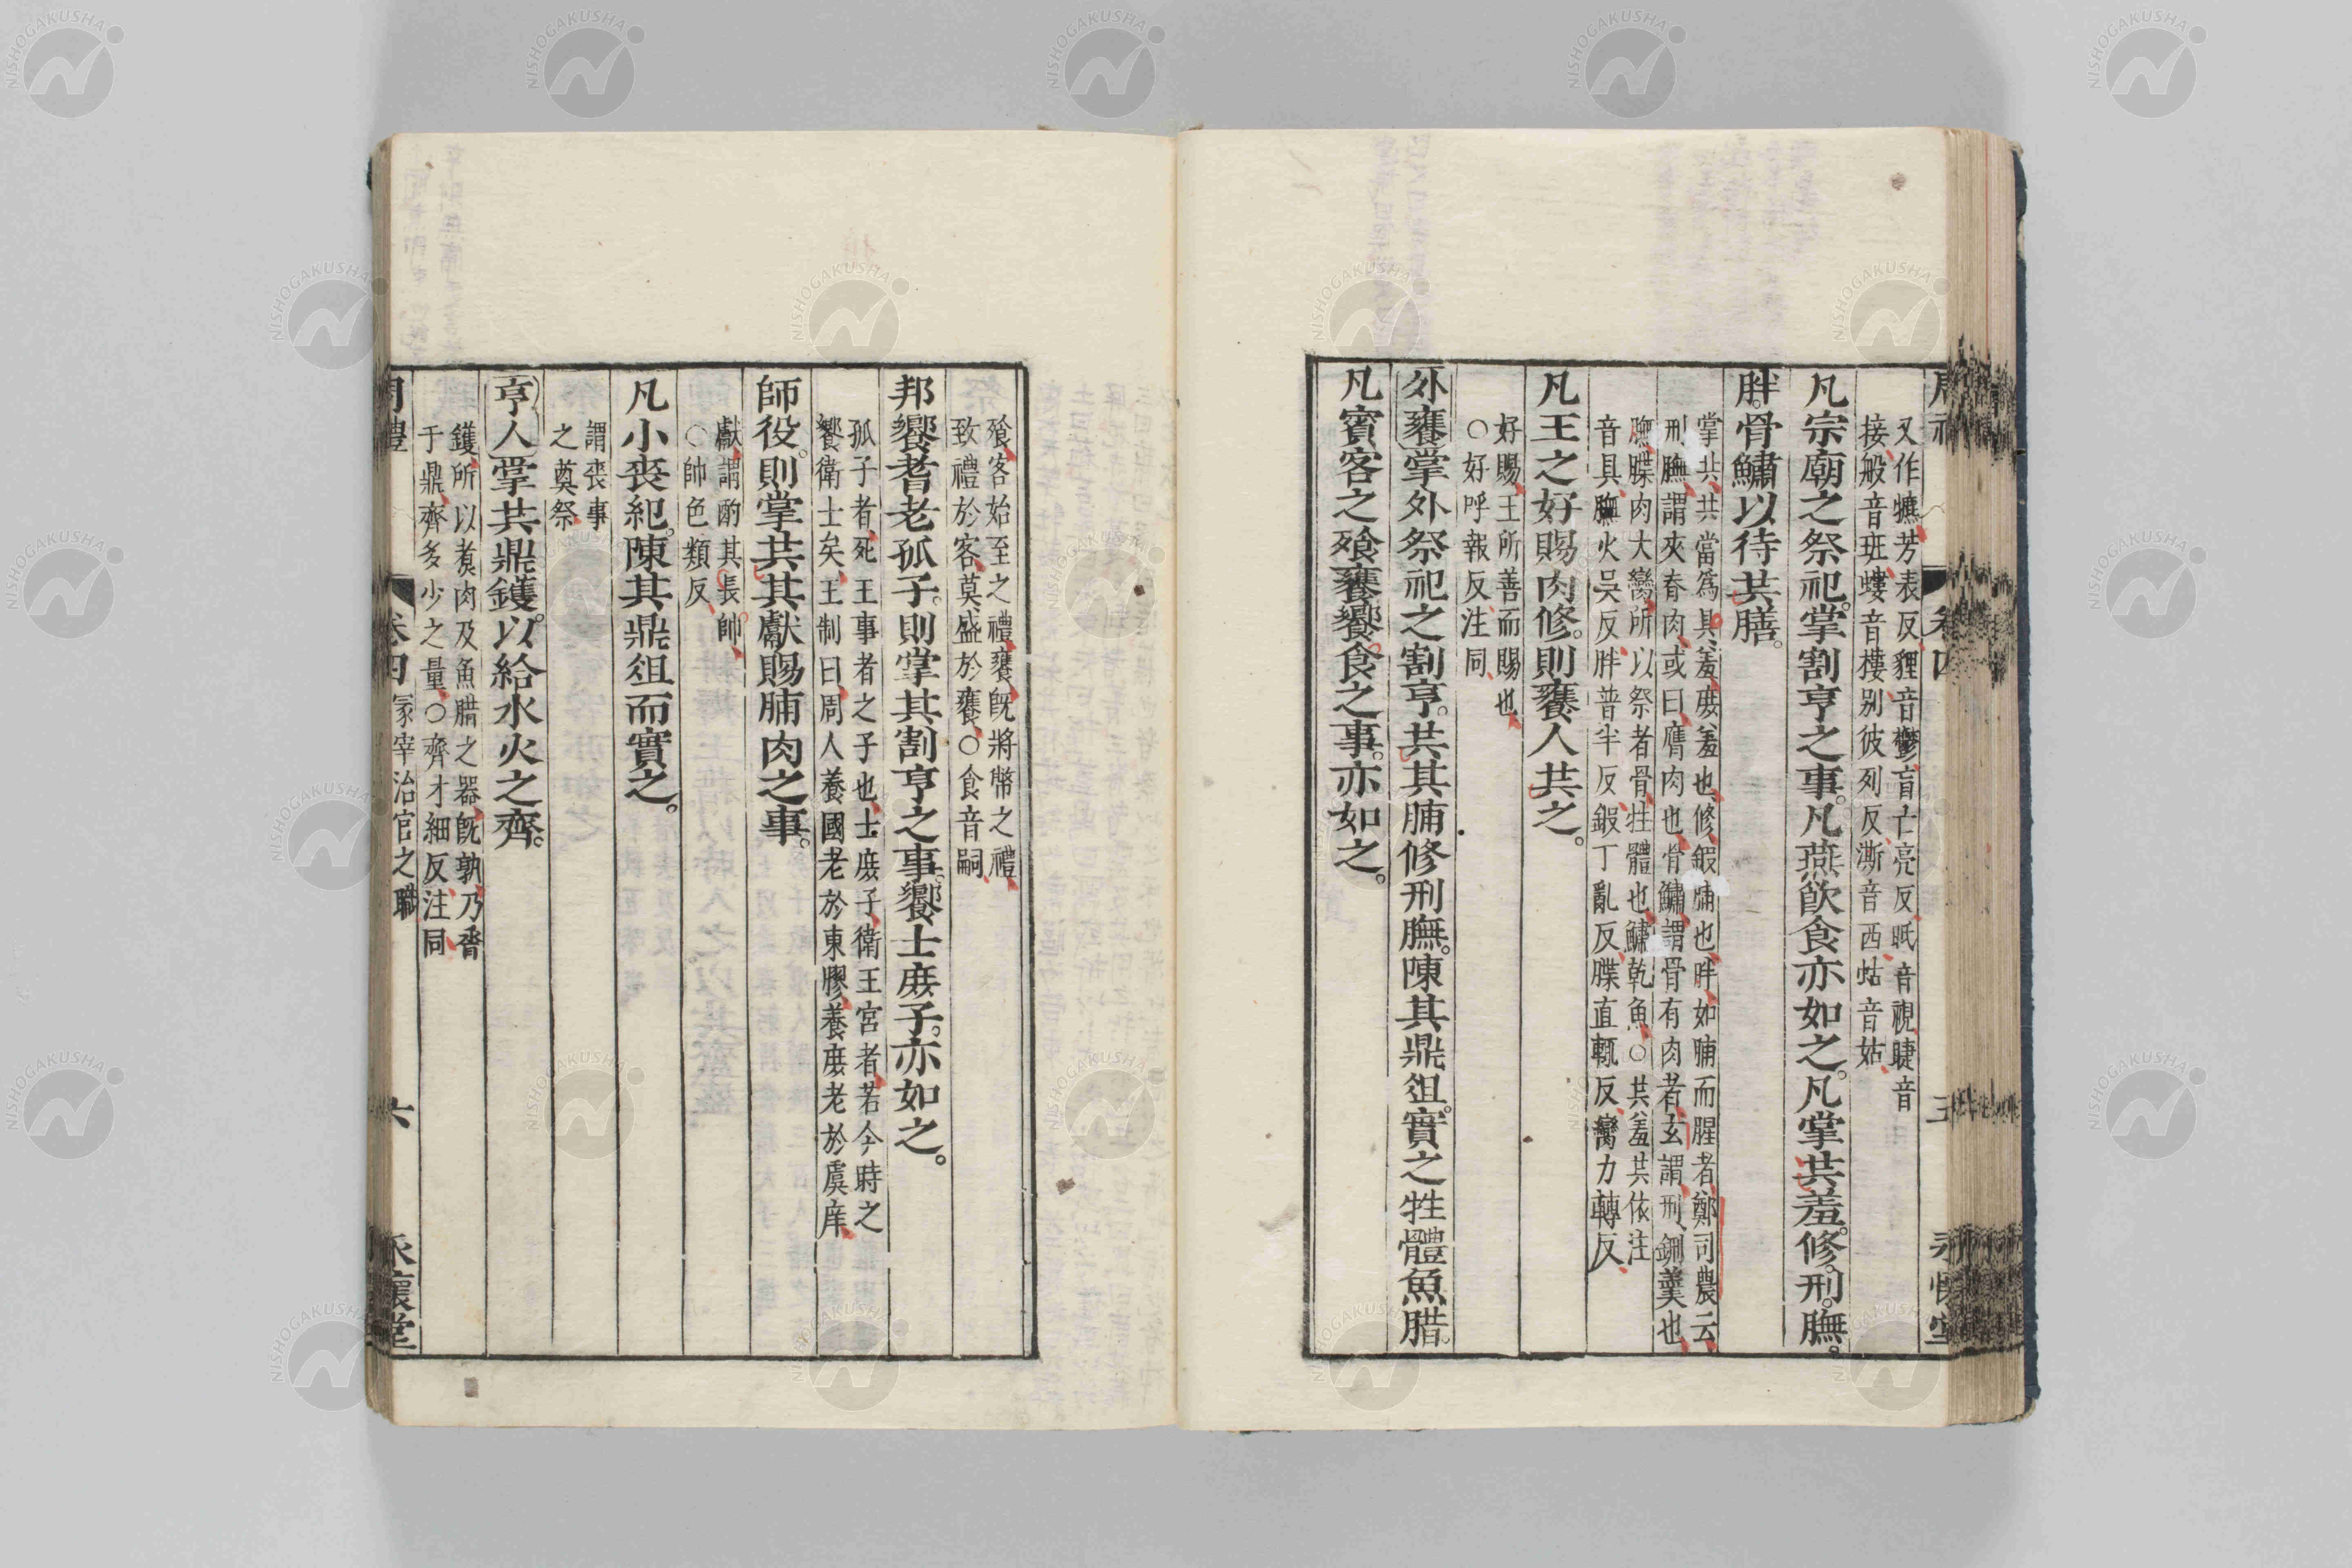 又作𤊒芳表反貍音鬱盲亡亮反眡音視睫音
接般音班螻音樓别彼列反澌音西蛄音姑
凡宗廟之祭祀。掌割亨之事。凡燕飲食亦如之。凡掌共羞。修。刑。膴。
胖。骨鱐以待共膳。
掌共共當爲具羞庶羞也修鍛脯也胖如脯而腥者鄭司農云
刑膴謂夾脊肉或曰膺肉也骨鱐謂骨有肉者玄謂刑鉶羹也
膴䐑肉大臠所以祭者骨牲體也鱐乾魚○共羞其依注
音具膴火吳反胖普半反鍛丁亂反䐑直輒反臠力轉反
凡王之好賜肉修。則饔人共之。
好賜王所善而賜也
○好呼報反注同
外饔掌外祭祀之割亨。共其脯修刑膴。陳其鼎俎。實之牲體魚腊
凡賓客之飱饔饗。食之事。亦如之。
飱客始至之禮饔既將幣之禮
致禮於客莫盛於饔○食音嗣
邦饗耆老孤子。則掌其割亨之事。饗士庶子。亦如之。
孤子者死王事者之子也士庶子衛王宮者若今時之
饗衛士矣王制曰周人養國老於東膠養庶老於虞庠
師役。則掌共其獻賜脯肉之事。
獻謂酌其長帥
○帥色類反
凡小喪紀。陳其鼎俎而實之。
謂喪事
之奠祭
亨人掌共鼎鑊。以給水火之齊。
鑊所以煮肉及魚腊之器既孰乃脀
于鼎齊多少之量○齊才細反注同
周禮 卷四 冢宰治官之職 六 永懷堂